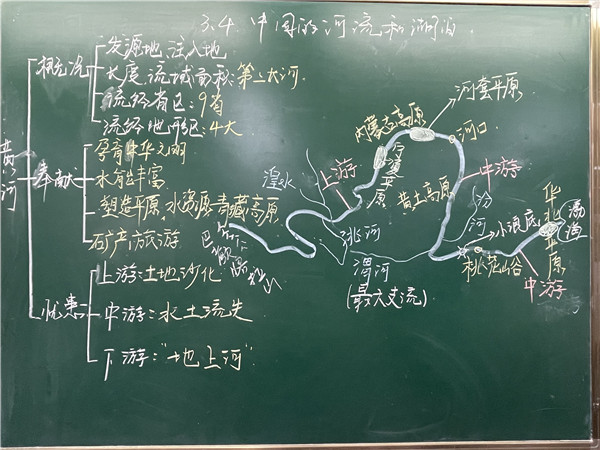 3.4 中国的河流和湖泊
黄河
概况
发源地 注入地
长度 流域面积:第二大河
流经省区:9省
流经地形区:4大
奉献
孕育中华文明
水能丰富
塑造平原 水资源
石矿产 旅游
忧患
上游:土地沙化
中游:水土流失
下游:"地上河"
青藏高原
巴颜喀拉山
湟水
上游
洮河
渭河
(最大支流)
宁夏平原
内蒙古高原
河套平原
河口
中游
黄土高原
汾河
小浪底
桃花峪
中游
华北平原
渤海